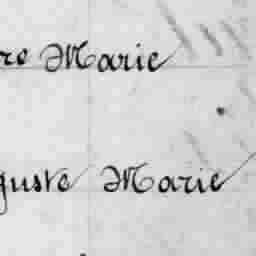 re Marie
guste Marie